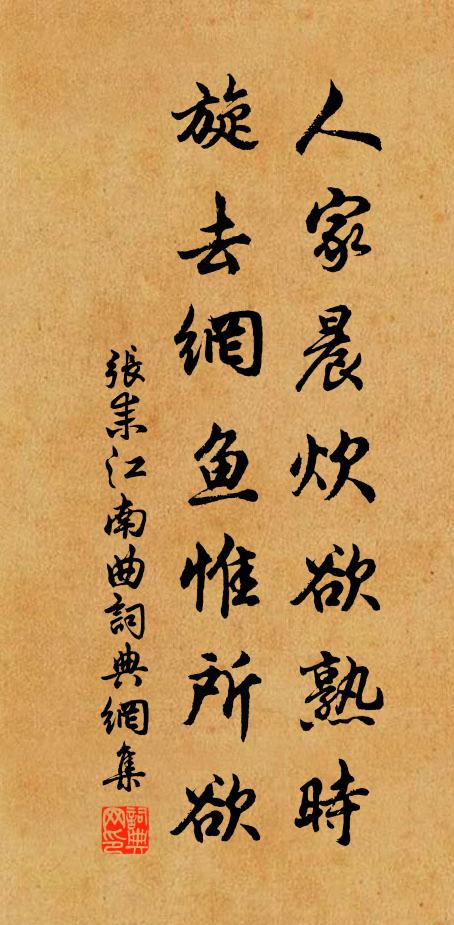 人家晨炊欲熟時
旋去網魚惟所欲
張耒江南曲詞典網集
詞典网印